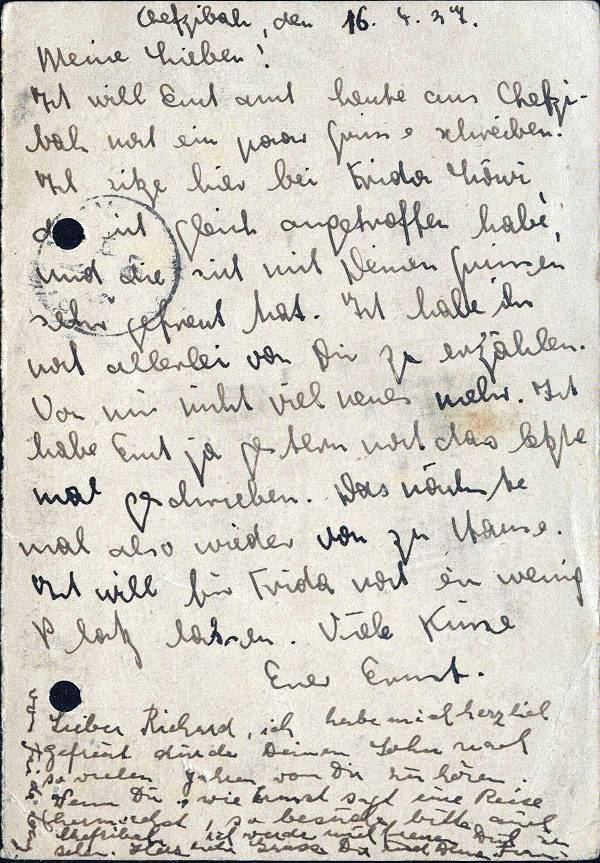 Chefzibah, den 16. 4. 37.
Meine Lieben!
Ich will Euch auch heute aus Chefzi-
bah noch ein paar Grüsse schreiben.
Ich sitze hier bei Frida Löwi,
die ich gleich angetroffen habe,
und die sich mit Deinen Grüssen
sehr gefreut hat. Ich habe ihr
noch allerlei von Dir zu erzählen.
Von mir nicht viel neues mehr. Ich
habe Euch ja gestern noch das letzte
mal geschrieben. Das nächste
mal also wieder von zu Hause.
Ich will für Frida noch ein wenig
Platz lassen. Viele Küsse
Euer Ernst.
Lieber Richard, ich habe mich herzlich
gefreut durch Deinen Sohn nach
so vielen Jahren von Dir zu hören.
Wenn Du, wie Ernst sagt eine Reise
hermachst, so besuche bitte auch
Chefzibah, ich würde mich freuen Dich zu
sehn. Grüsse Dir und Deine